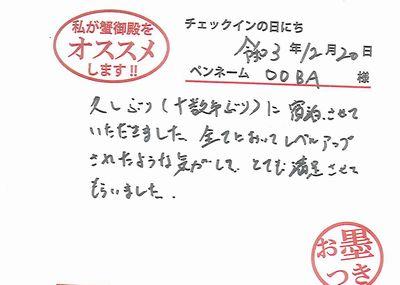 私が蟹御殿を
オススメ
します!!
チェックインの日にち
令和3年12月20日
ペンネーム OOBA 様
久しぶり(十数年ぶり)に宿泊させて
いただきました。全てにおいてレベルアップ
されたような気がして、とても満足させて
もらいました。
お墨
つき